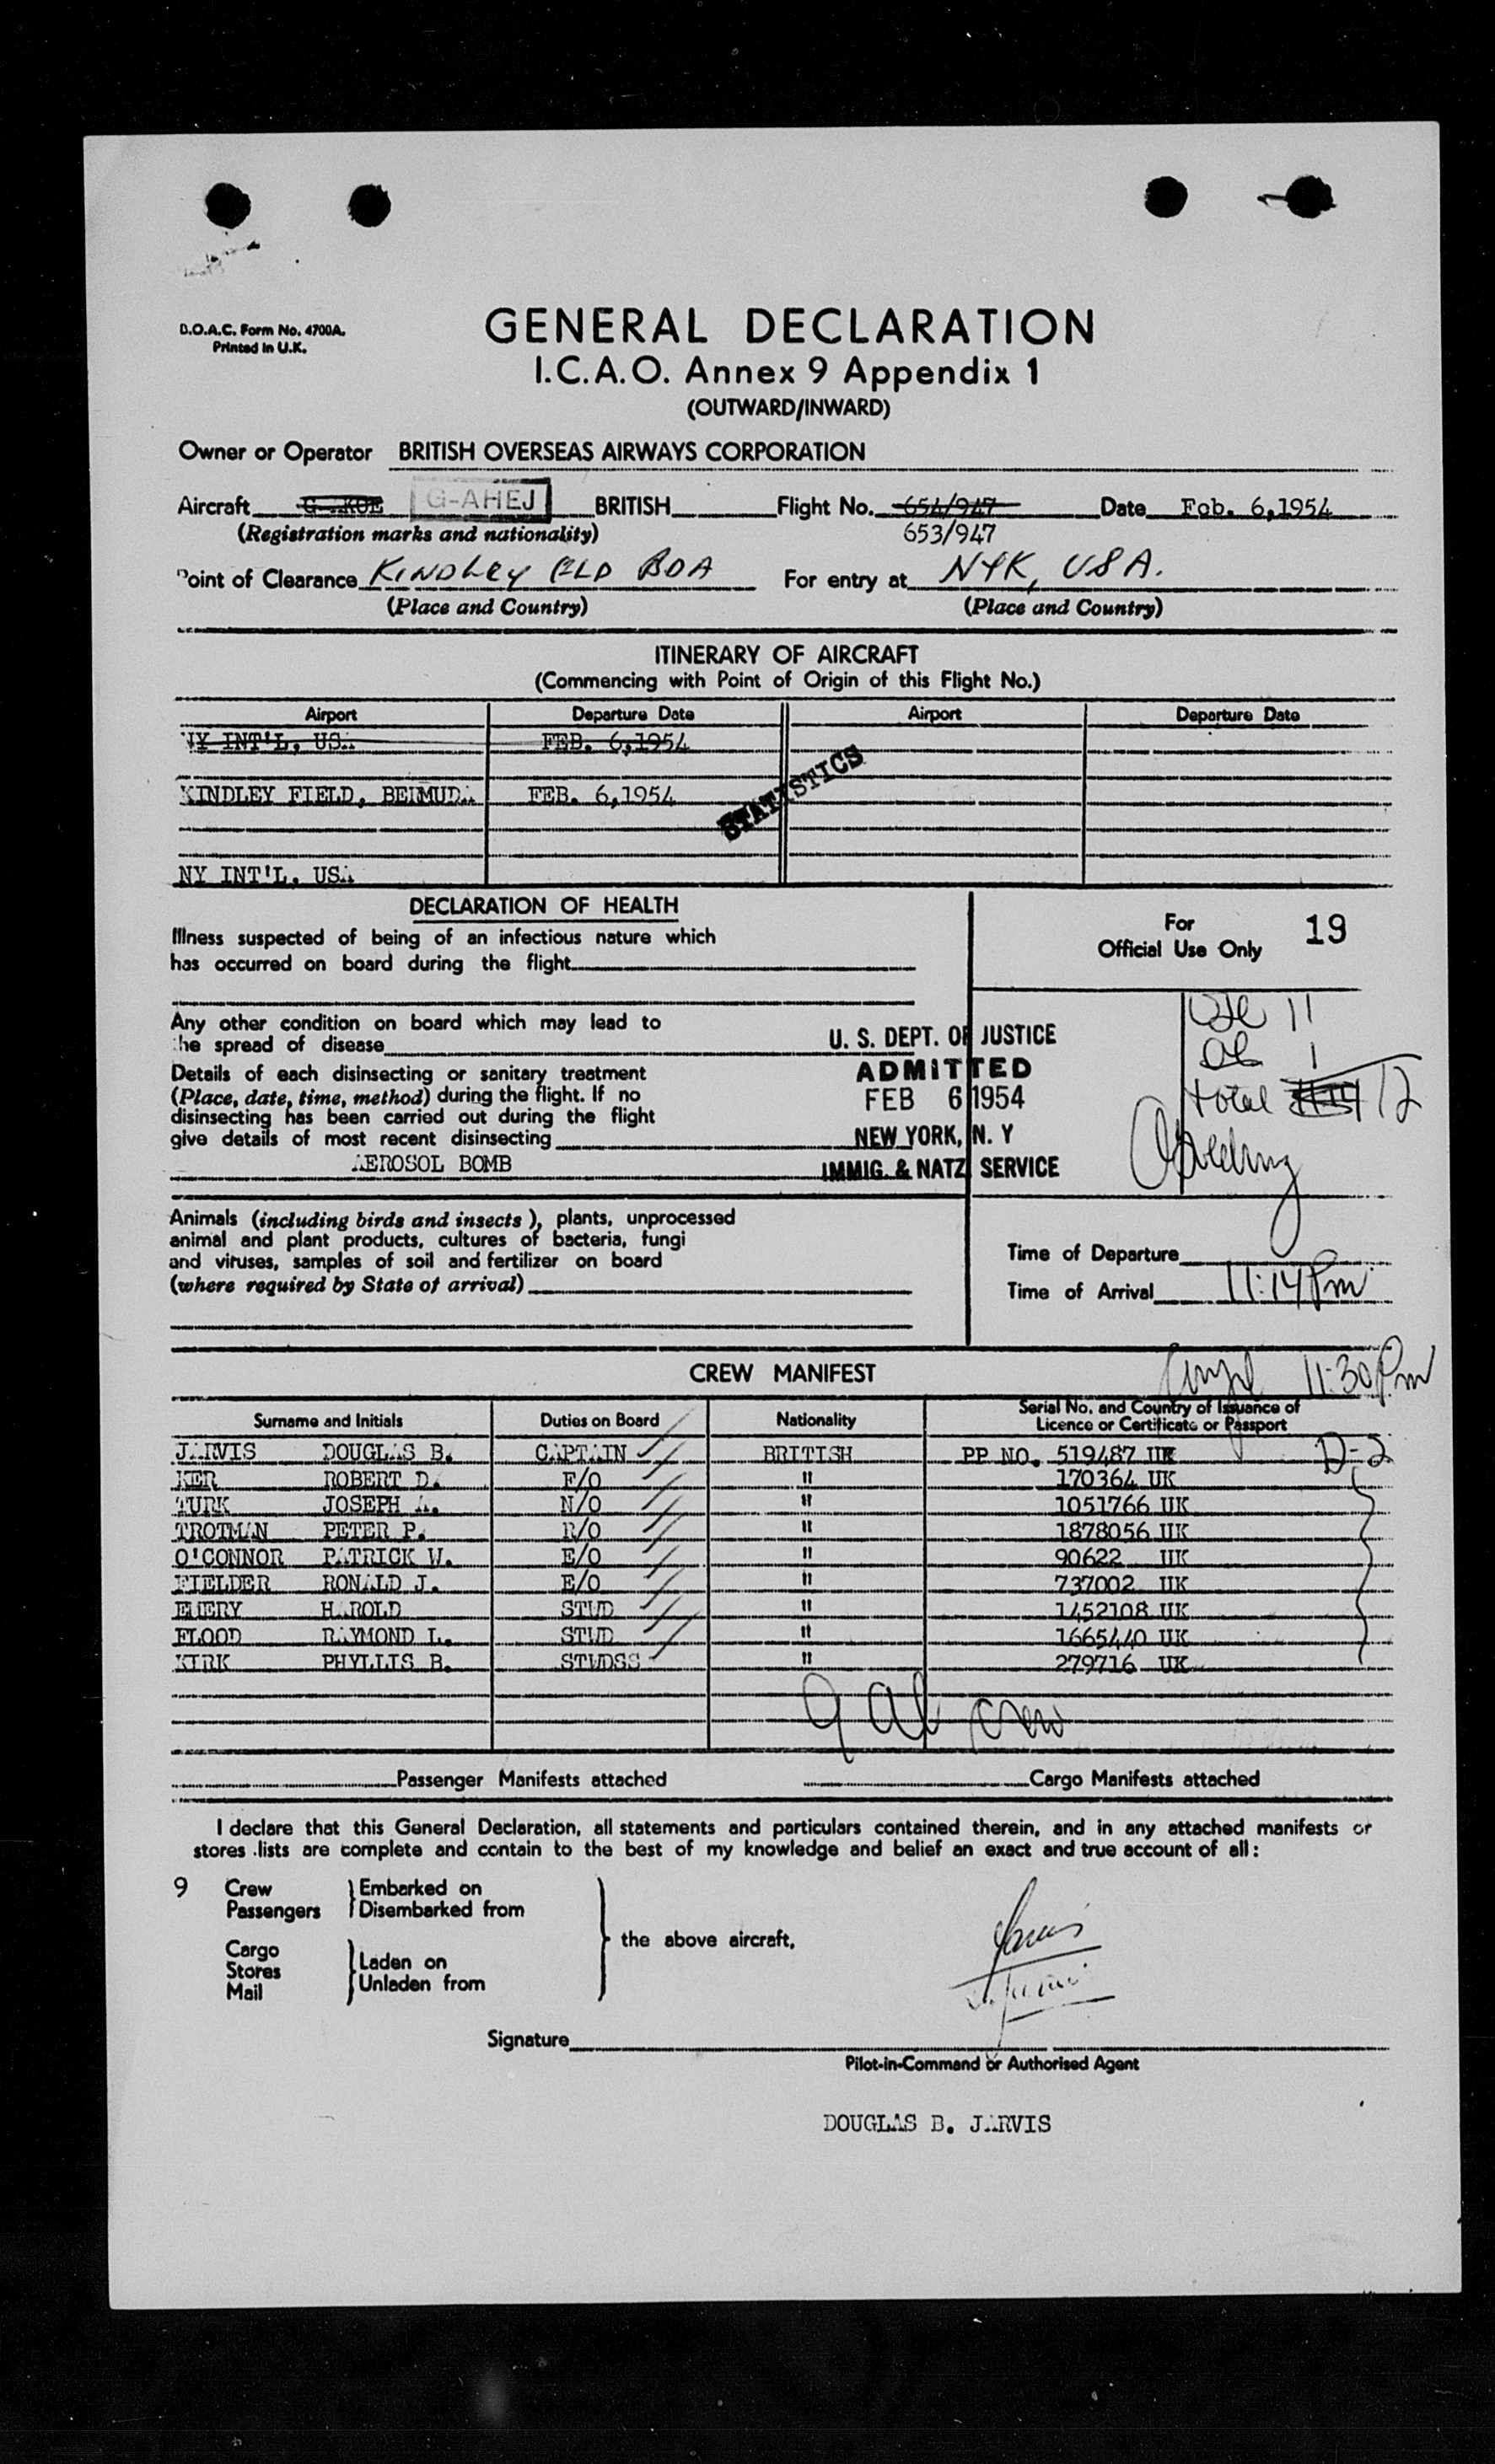 B.O.A.C. Form No. 4700A.
Printed in U.K.
GENERAL DECLARATION
I.C.A.O. Annex 9 Appendix 1
(OUTWARD/INWARD)
Owner or Operator BRITISH OVERSEAS AIRWAYS CORPORATION
Aircraft G-AHEJ BRITISH Flight No. 654/947 Date Feb. 6,1954
(Registration marks and nationality) 653/947
Point of Clearance KINDLEY FLD BDA For entry at NYK, USA.
(Place and Country) (Place and Country)
ITINERARY OF AIRCRAFT
(Commencing with Point of Origin of this Flight No.)
Airport Departure Date Airport Departure Date
NY INT'L, USA FEB. 6,1954
STATISTICS
KINDLEY FIELD, BERMUDA FEB. 6,1954
NY INT'L. USA
DECLARATION OF HEALTH
Illness suspected of being of an infectious nature which
has occurred on board during the flight
For
Official Use Only 19
Any other condition on board which may lead to
the spread of disease
Details of each disinsecting or sanitary treatment
(Place, date, time, method) during the flight. If no
disinsecting has been carried out during the flight
give details of most recent disinsecting
AEROSOL BOMB
U. S. DEPT. OF JUSTICE
ADMITTED
FEB 6 1954
NEW YORK, N. Y
IMMIG. & NATZ SERVICE
USC 11
al 1
total 12
Animals (including birds and insects), plants, unprocessed
animal and plant products, cultures of bacteria, fungi
and viruses, samples of soil and fertilizer on board
(where required by State of arrival)
Time of Departure
Time of Arrival 11:14 Pm
11:30 Pm
CREW MANIFEST
Surname and Initials Duties on Board Nationality Serial No. and Country of Issuance of
Licence or Certificate or Passport
JARVIS DOUGLAS B. CAPTAIN BRITISH PP NO. 519487 UK D-2
KER ROBERT D. F/O " 170364 UK
TURK JOSEPH A. N/O " 1051766 UK
TROTMAN PETER P. R/O " 1878056 UK
O'CONNOR PATRICK W. E/O " 90622 UK
FIELDER RONALD J. E/O " 737002 UK
EMERY HAROLD STUD " 1452108 UK
FLOOD RAYMOND L. STUD " 1665440 UK
KIRK PHYLLIS B. STUDSS " 279716 UK
9 al crew
Passenger Manifests attached Cargo Manifests attached
I declare that this General Declaration, all statements and particulars contained therein, and in any attached manifests or
stores lists are complete and contain to the best of my knowledge and belief an exact and true account of all:
9 Crew Embarked on
Passengers Disembarked from
the above aircraft,
Cargo
Stores Laden on
Mail Unladen from
Jarvis
Signature
Pilot-in-Command or Authorised Agent
DOUGLAS B. JARVIS